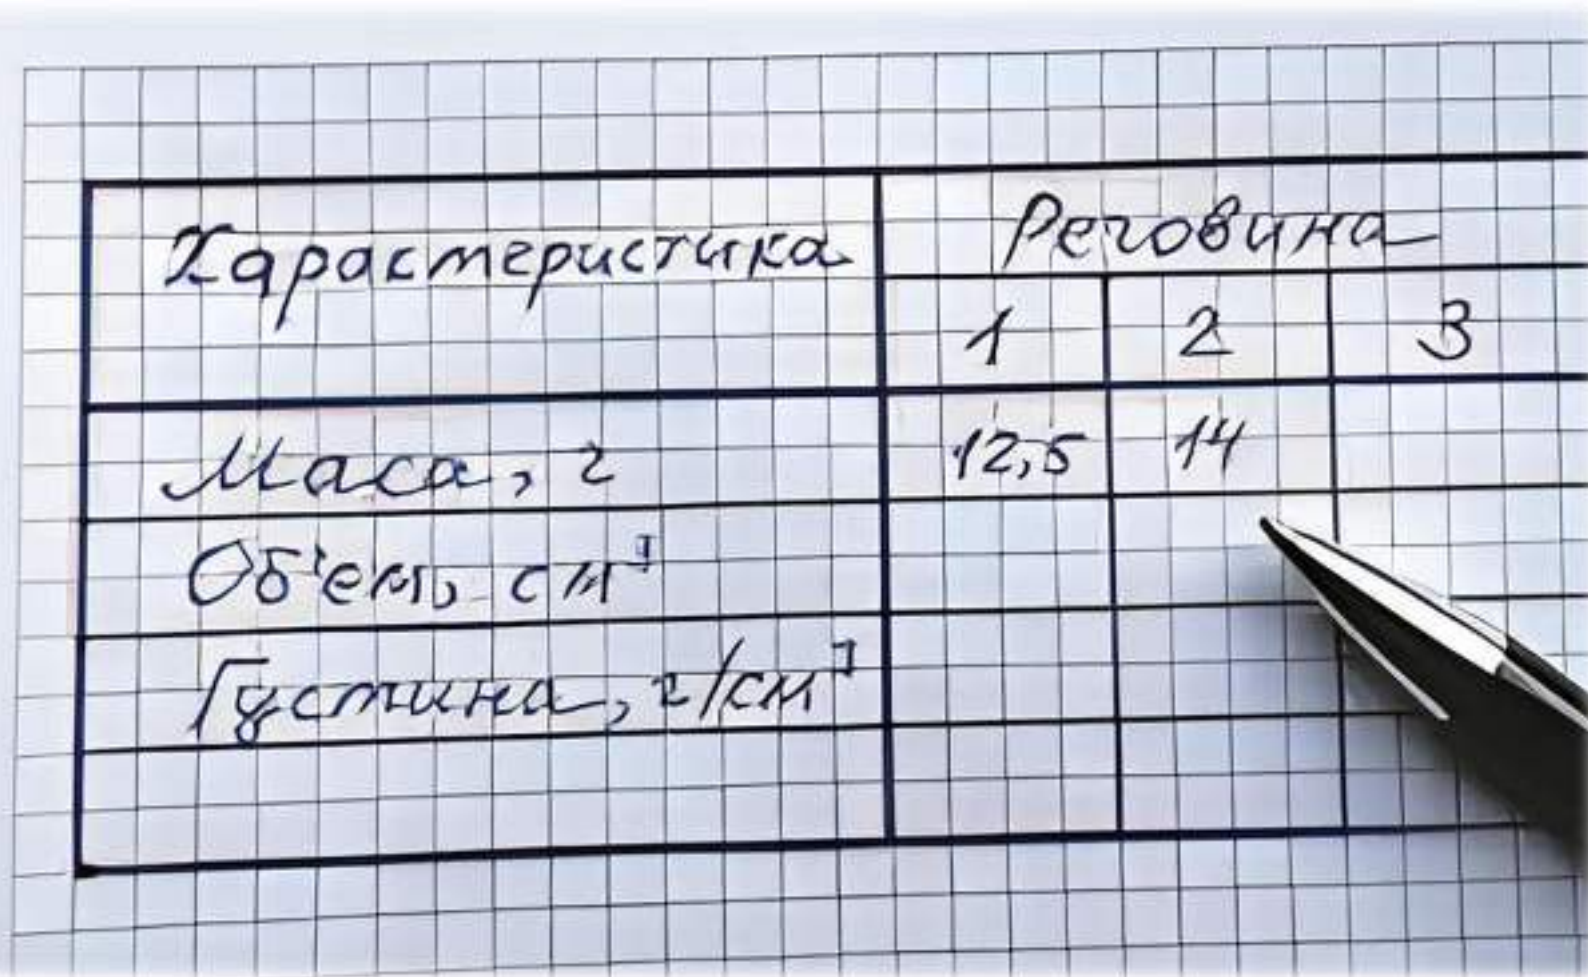 Характеристика Речовина
1 2 3
Маса, г 12,5 14
Об'єм, см³
Густина, г/см³